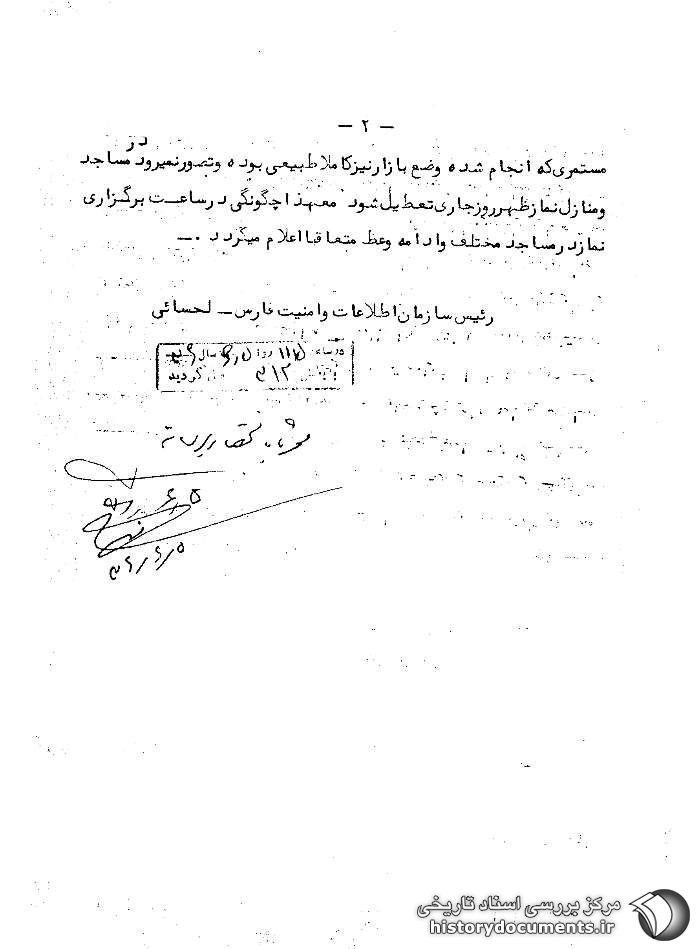 — ۲ —
در
مستمری که انجام شده وضع بازار نیز کاملا طبیعی بوده و تصور نمیرود مساجد
و منازل نماز ظهر روز جاری تعطیل شود معهذا چگونگی در ساعت برگزاری
نماز در مساجد مختلف و ادامه وعظ متعاقبا اعلام میگردد .—
رئیس سازمان اطلاعات و امنیت فارس — لحسائی
در ساعت روز سال
۳۱۲ گردید
مرکز بررسی اسناد تاریخی
historydocuments.ir